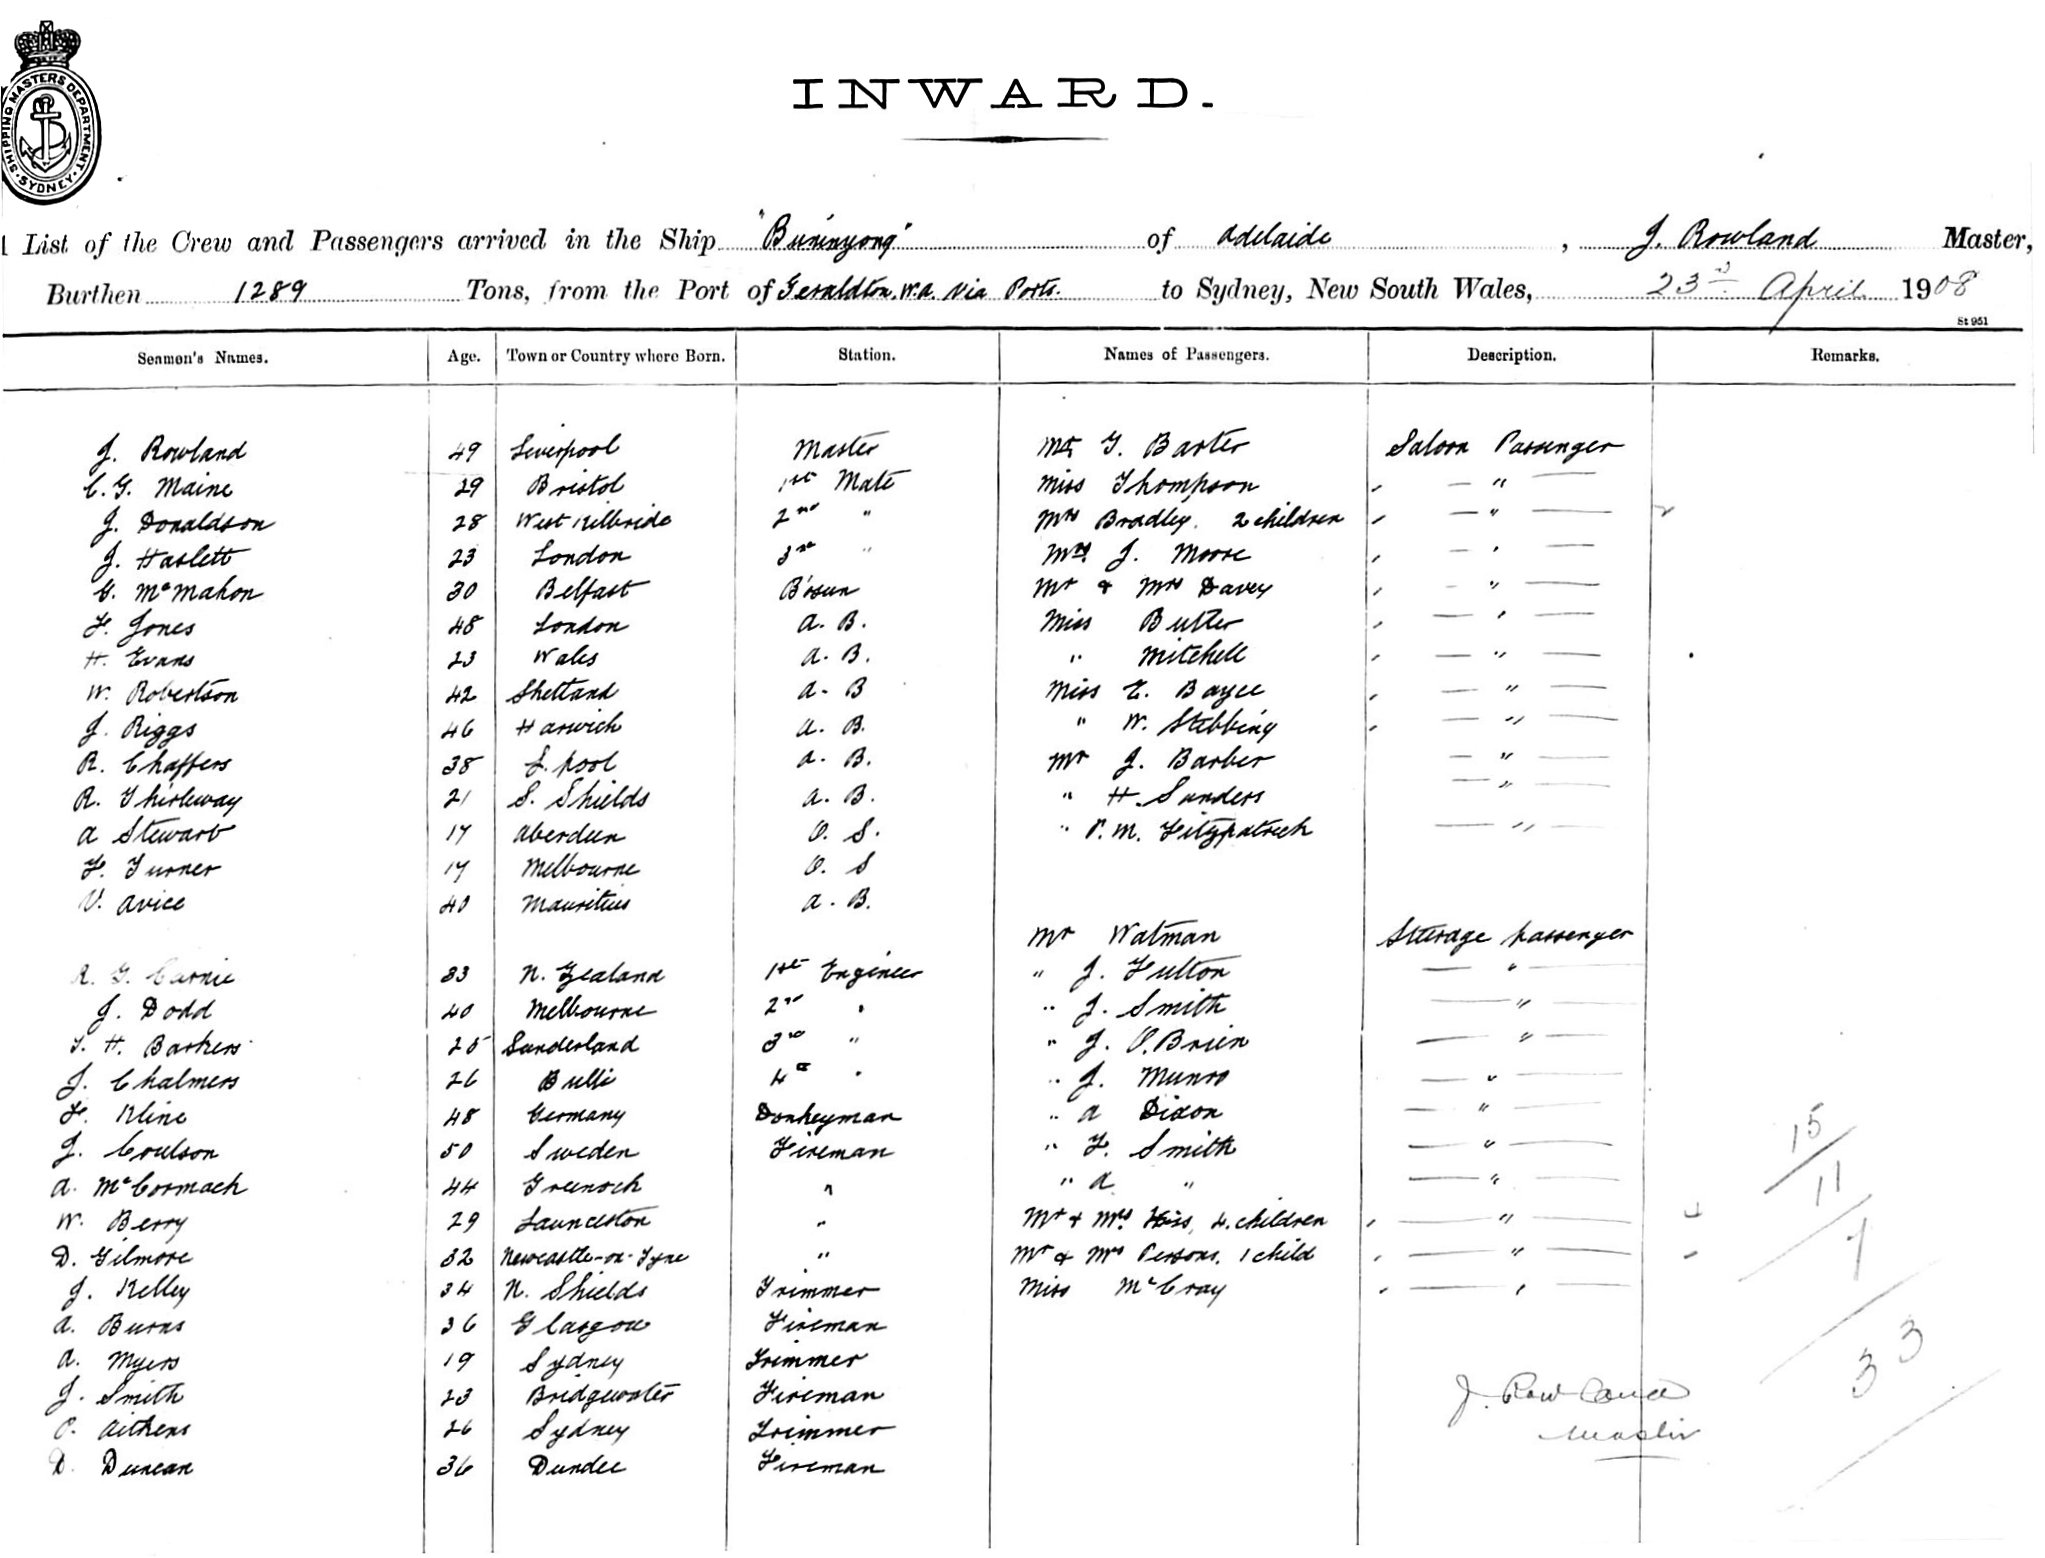 SHIPPING MASTERS DEPARTMENT. SYDNEY.
INWARD.
List of the Crew and Passengers arrived in the Ship "Buninyong" of Adelaide, J. Rowland Master,
Burthen 1289 Tons, from the Port of Geraldton, W.A. Via Ports. to Sydney, New South Wales, 23rd April 1908
St 951
Seamen's Names. Age. Town or Country where Born. Station. Names of Passengers. Description. Remarks.
J. Rowland 49 Liverpool Master Mr G. Baxter Saloon Passenger
C. G. Maine 29 Bristol 1st Mate Miss Thompson — " —
J. Donaldson 28 West Kilbride 2nd " Mrs Bradley. 2 children — " —
J. Haslett 23 London 3rd " Mrs J. Moore — " —
G. McMahon 30 Belfast Bosun Mr & Mrs Davey — " —
F. Jones 48 London A. B. Miss Butler — " —
H. Evans 23 Wales A. B. " Mitchell — " —
W. Robertson 42 Shetland A. B Miss E. — " —
J. Riggs 46 Harwich A. B. " W. Stebbing — " —
R. Chaffers 38 L.pool A. B. Mr J. Barber — " —
R. Thirlway 21 S. Shields A. B. " H. Sanders — " —
A Stewart 17 Aberdeen O. S. " P. M. Fitzpatrick — " —
F. Turner 17 Melbourne O. S
V. Avice 40 Mauritius A. B.
Mr Watman Steerage passenger
R. G. Carnie 33 N. Zealand 1st Engineer " J. Fulton — " —
J. Dodd 40 Melbourne 2nd " " J. Smith — " —
T. H. Barkers 25 Sunderland 3rd " " J. O.Brien — " —
J. Chalmers 26 Bulli 4th " " J. Munro — " —
F. Kline 48 Germany Donkeyman " A Dixon — " —
J. Coulson 50 Sweden Fireman " F. Smith — " —
A. McCormack 44 Greenock " " A " — " —
W. Berry 29 Launceston " Mr & Mrs 4. children — " — 4
D. Gilmore 32 Newcastle-on-Tyne " Mr & Mrs Persons. 1 child — " —
J. Kelley 34 N. Shields Trimmer Miss McCray — " —
A. Burns 36 Glasgow Fireman
A. Myers 19 Sydney Trimmer
J. Smith 23 Bridgewater Fireman
P. Aitkens 26 Sydney Trimmer
D. Duncan 36 Dundee Fireman
15
11
7
33
J. Rowland
Master